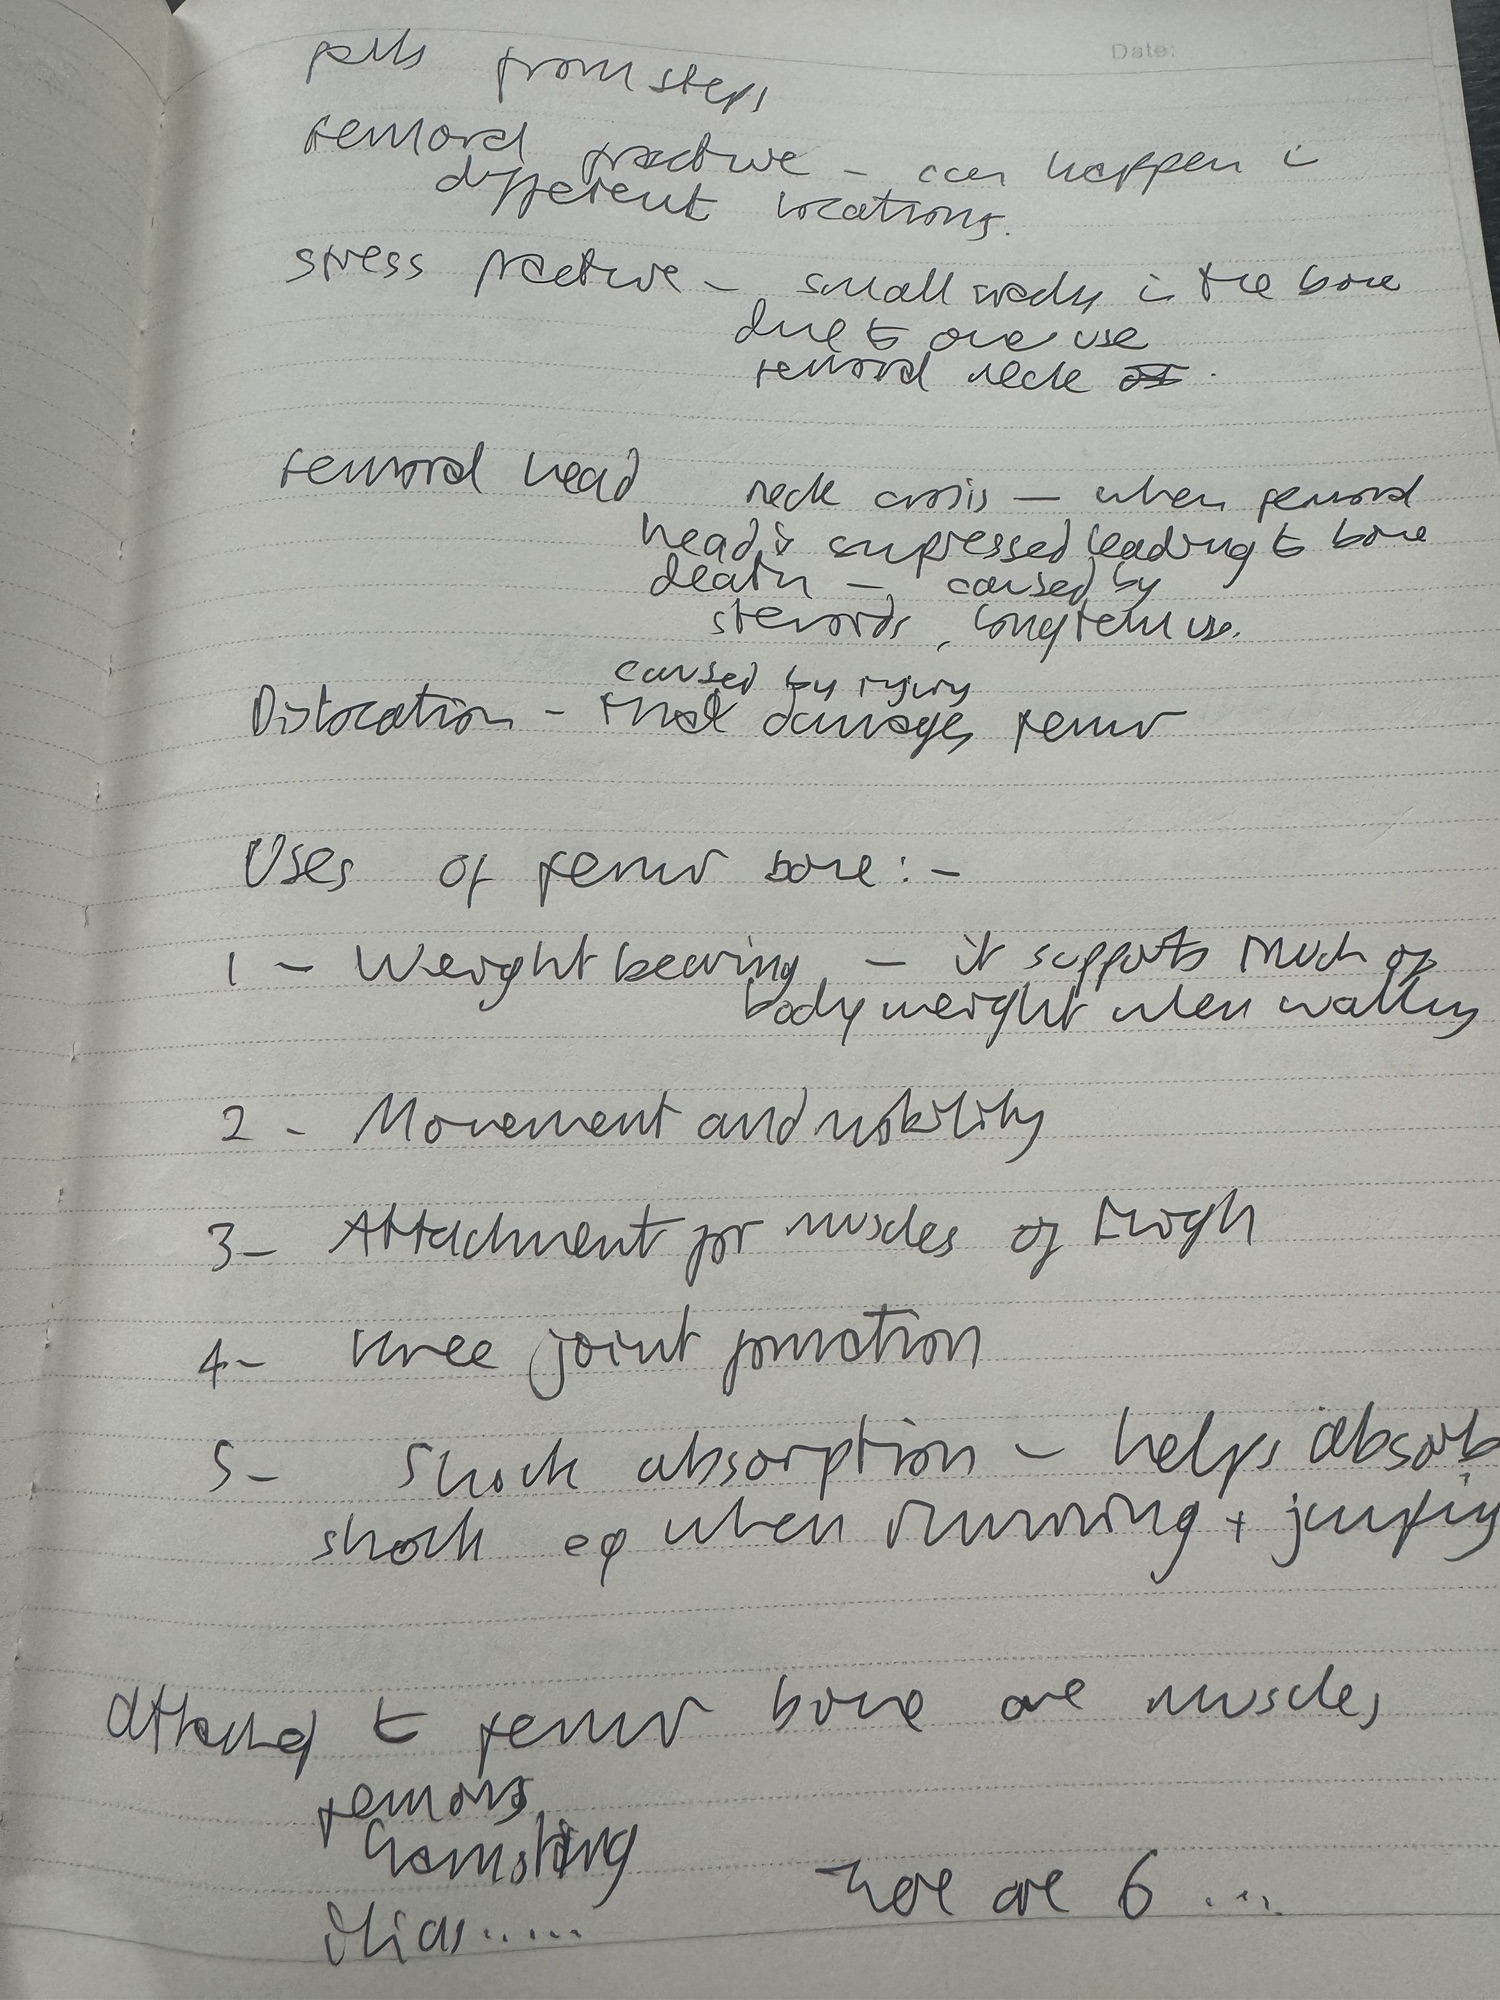 Date:
falls from steps
femoral fracture - can happen in
different locations.
stress fracture - small cracks in the bone
due to over use
femoral neck
femoral head neck crosis - when femoral
head is supressed leading to bone
death - caused by
steroids, longterm use.
caused by injury
Dislocation - that damages femur
Uses of femur bone :-
1 - Weight bearing - it supports much of
body weight when walking
2 - Movement and mobility
3 - Attachment for muscles of thigh
4 - Knee joint function
5 - Shock absorption - helps absorb
shock eg when running + jumping
Attached to femur bone are muscles
femoris
hamstring
iliacs.....
There are 6 ...